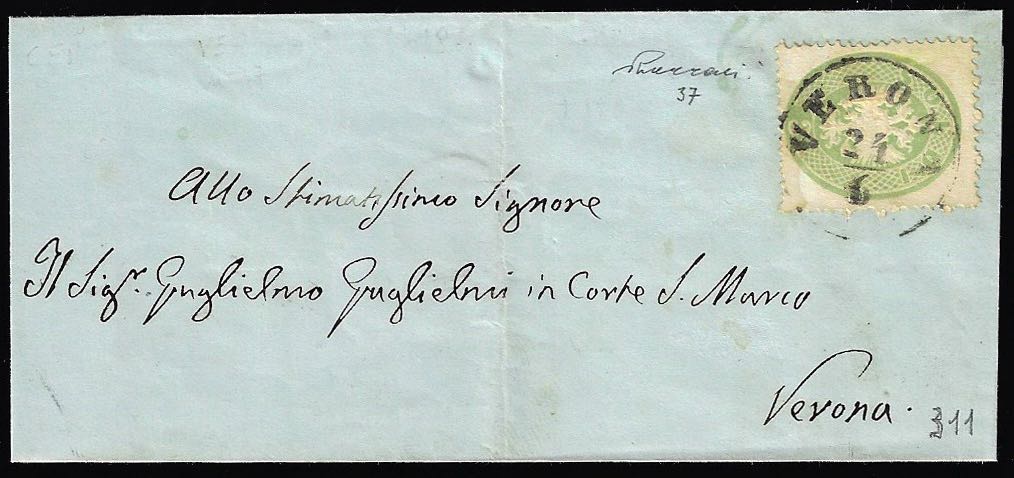 37
VERONA
21
6
Allo Stimatissimo Signore
Il Sigr. Guglielmo Guglielmi in Corte S. Marco
Verona.
311